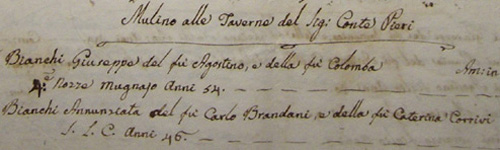 Mulino alle Taverne del Sig: Conte Pieri
Bianchi Giuseppe del fu Agostino, e della fu Colomba Am: in
4.e Nozze Mugnajo Anni 54.
Bianchi Annunziata del fu Carlo Brandani, e della fu Caterina Corrivi
S. L. C. Anni 46.